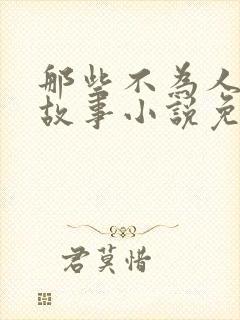 那些不為人
故事小說免
君莫惜